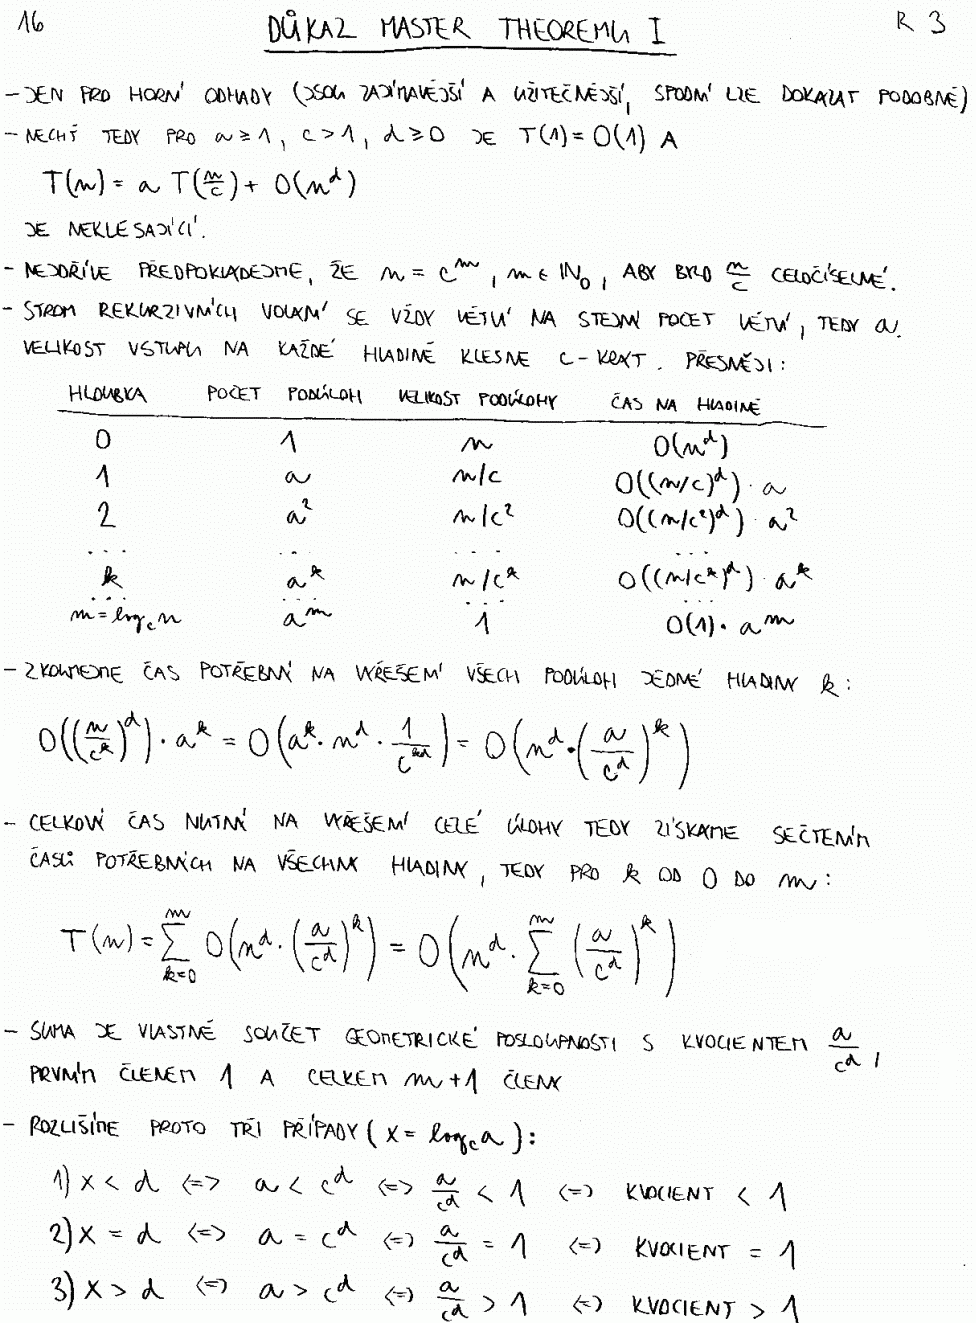 16 DŮKAZ MASTER THEOREMU I R 3
- JEN PRO HORNÍ ODHADY (JSOU ZAJÍMAVĚJŠÍ A UŽITEČNĚJŠÍ, SPODNÍ LZE DOKÁZAT PODOBNĚ)
- NECHŤ TEDY PRO a ≥ 1, c > 1, d ≥ 0 JE T(1) = O(1) A
T(n) = a T(n/c) + O(n^d)
JE NEKLESAJÍCÍ.
- NEJDŘÍVE PŘEDPOKLÁDEJME, ŽE n = c^m, m ∈ ℕ₀, ABY BYLO n/c CELOČÍSELNÉ.
- STROM REKURZIVNÍCH VOLÁNÍ SE VŽDY VĚTVÍ NA STEJNÝ POČET VĚTVÍ, TEDY a.
VELIKOST VSTUPU NA KAŽDÉ HLADINĚ KLESNE c-KRÁT. PŘESNĚJI:
HLOUBKA POČET PODÚLOH VELIKOST PODÚLOHY ČAS NA HLADINĚ
0 1 n O(n^d)
1 a n/c O((n/c)^d) · a
2 a² n/c² O((n/c²)^d) · a²
... ... ... ...
k a^k n/c^k O((n/c^k)^d) · a^k
... ... ... ...
m = log_c n a^m 1 O(1) · a^m
- ZKOUMEJME ČAS POTŘEBNÝ NA VYŘEŠENÍ VŠECH PODÚLOH JEDNÉ HLADINY k:
O((n/c^k)^d) · a^k = O(a^k · n^d · 1/c^{kd}) = O(n^d · (a/c^d)^k)
- CELKOVÝ ČAS NUTNÝ NA VYŘEŠENÍ CELÉ ÚLOHY TEDY ZÍSKÁME SEČTENÍM
ČASŮ POTŘEBNÝCH NA VŠECHNY HLADINY, TEDY PRO k OD 0 DO m:
T(n) = ∑_{k=0}^{m} O(n^d · (a/c^d)^k) = O(n^d · ∑_{k=0}^{m} (a/c^d)^k)
- SUMA JE VLASTNĚ SOUČET GEOMETRICKÉ POSLOUPNOSTI S KVOCIENTEM a/c^d,
PRVNÍM ČLENEM 1 A CELKEM m+1 ČLENY
- ROZLIŠÍME PROTO TŘI PŘÍPADY (x = log_c a):
1) x < d <=> a < c^d <=> a/c^d < 1 <=> KVOCIENT < 1
2) x = d <=> a = c^d <=> a/c^d = 1 <=> KVOCIENT = 1
3) x > d <=> a > c^d <=> a/c^d > 1 <=> KVOCIENT > 1